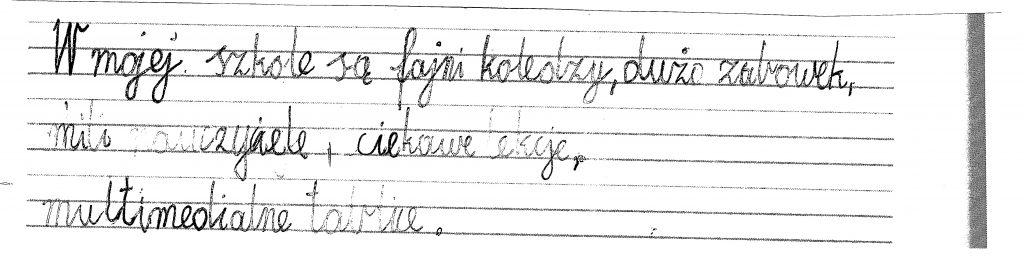 W mojej szkole są fajni koledzy, dużo zabawek,
mili nauczyciele, ciekawe lekcje,
multimedialne tablice.